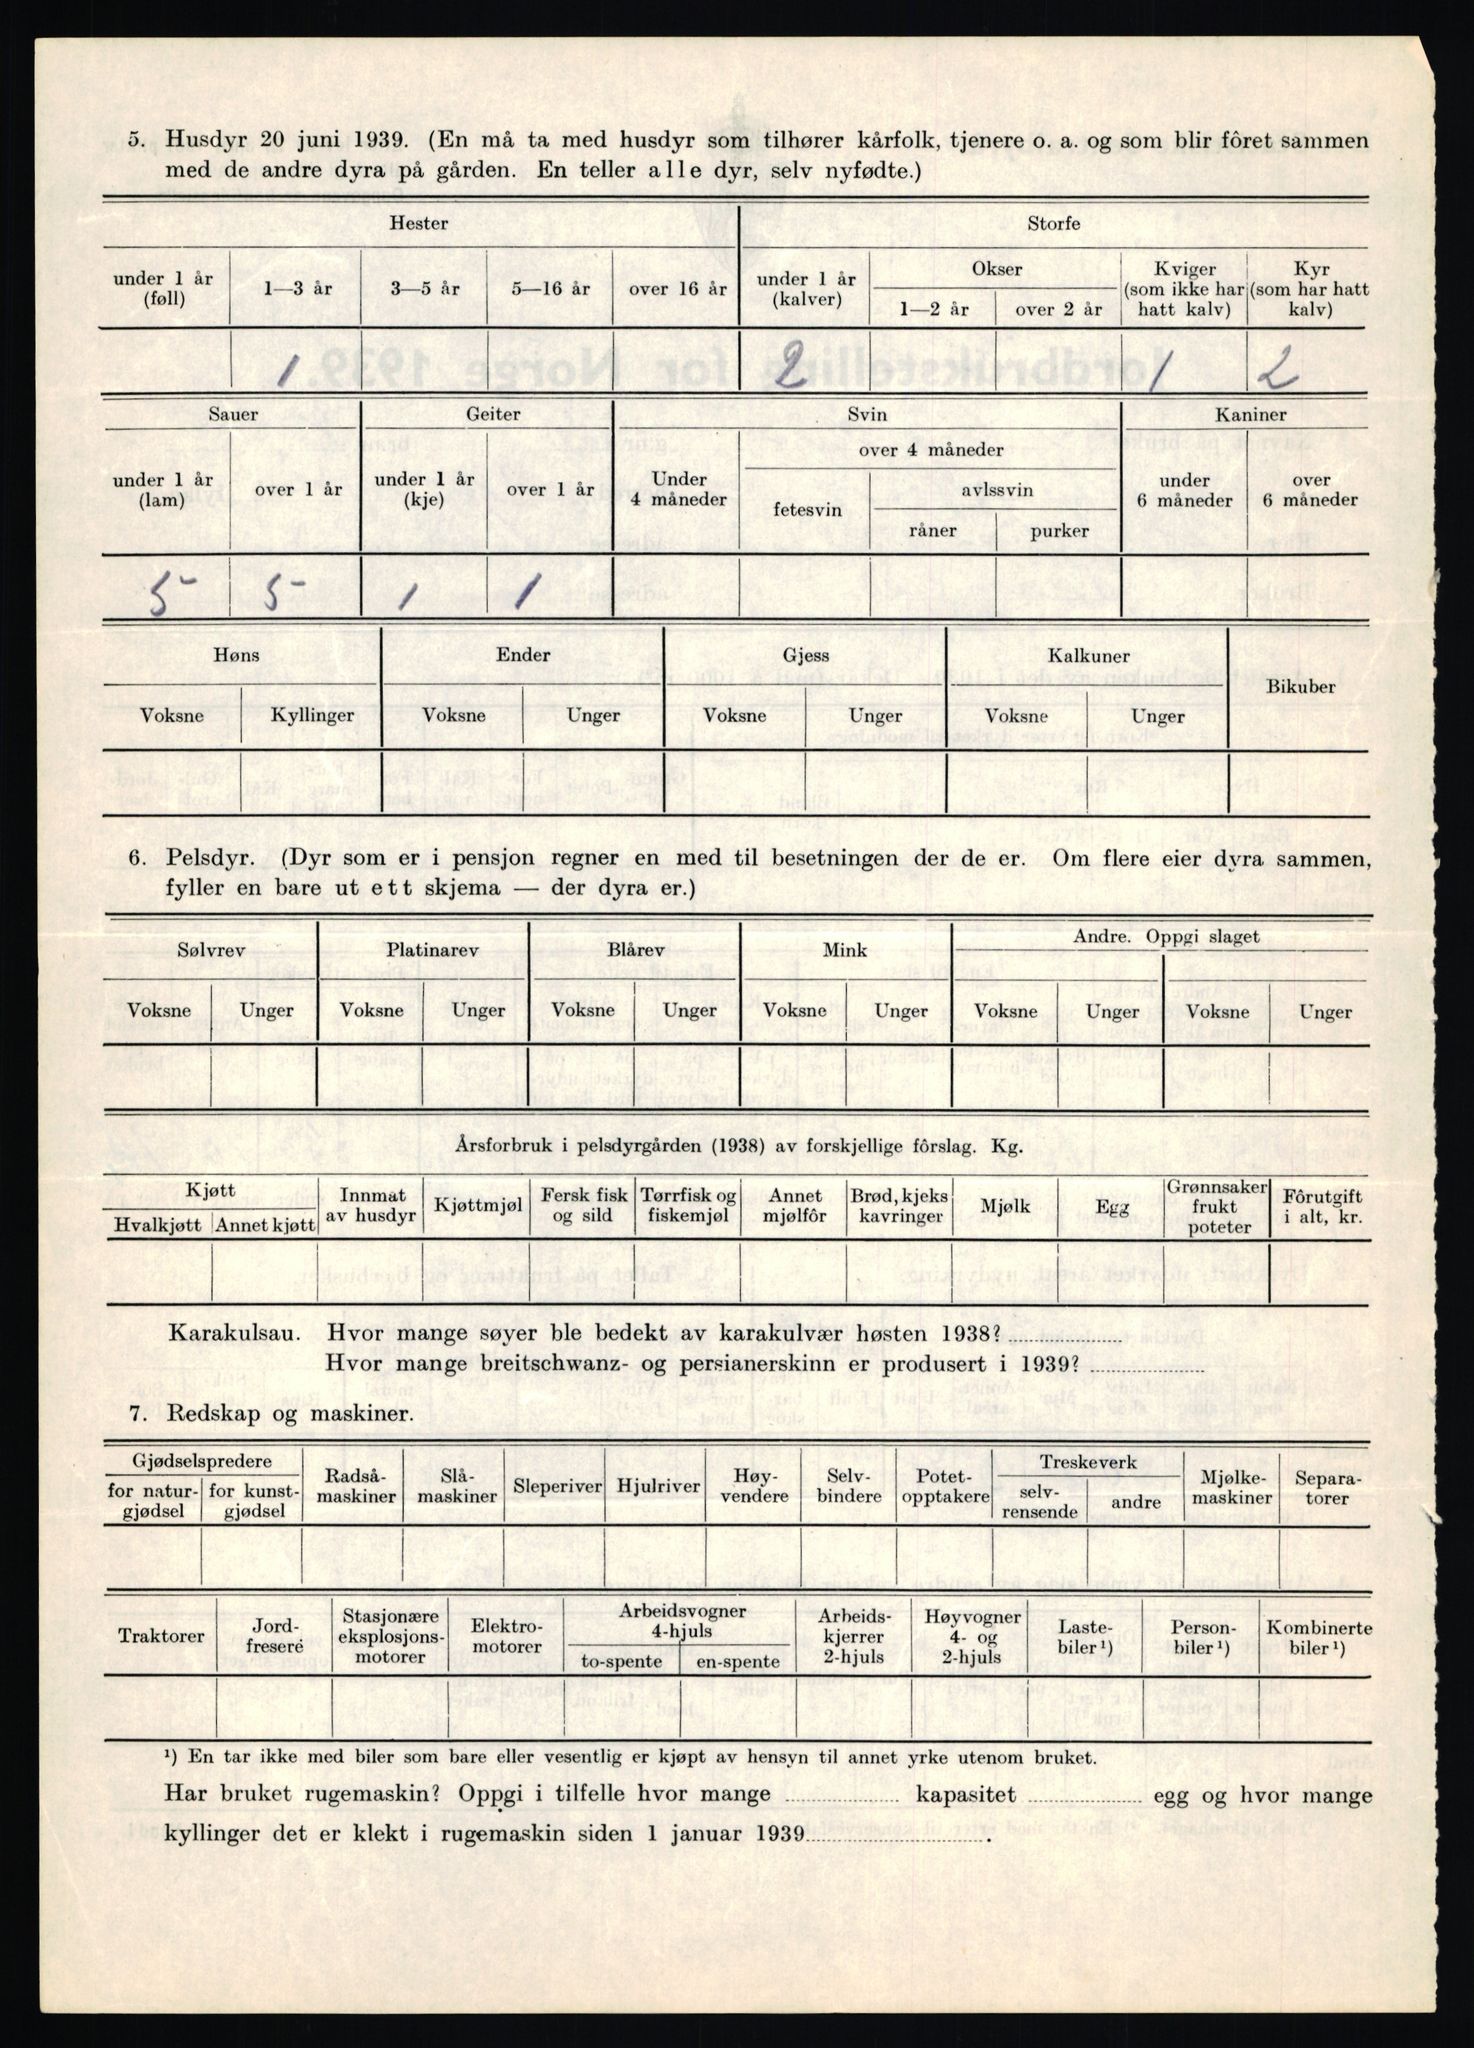 5. Husdyr 20 juni 1939. (En må ta med husdyr som tilhører kårfolk, tjenere o. a. og som blir fôret sammen
med de andre dyra på gården. En teller alle dyr, selv nyfødte.)
Hester Storfe
under 1 år (føll) 1—3 år 3—5 år 5—16 år over 16 år under 1 år (kalver) Okser 1—2 år over 2 år Kviger (som ikke har hatt kalv) Kyr (som har hatt kalv)
1 2 1 2
Sauer Geiter Svin Kaniner
under 1 år (lam) over 1 år under 1 år (kje) over 1 år Under 4 måneder over 4 måneder fetesvin avlssvin råner purker under 6 måneder over 6 måneder
5 5 1 1
Høns Ender Gjess Kalkuner Bikuber
Voksne Kyllinger Voksne Unger Voksne Unger Voksne Unger
6. Pelsdyr. (Dyr som er i pensjon regner en med til besetningen der de er. Om flere eier dyra sammen,
fyller en bare ut ett skjema — der dyra er.)
Sølvrev Platinarev Blårev Mink Andre. Oppgi slaget
Voksne Unger Voksne Unger Voksne Unger Voksne Unger Voksne Unger Voksne Unger
Årsforbruk i pelsdyrgården (1938) av forskjellige fôrslag. Kg.
Kjøtt Hvalkjøtt Annet kjøtt Innmat av husdyr Kjøttmjøl Fersk fisk og sild Tørrfisk og fiskemjøl Annet mjølfôr Brød, kjeks kavringer Mjølk Egg Grønnsaker frukt poteter Fôrutgift i alt, kr.
Karakulsau. Hvor mange søyer ble bedekt av karakulvær høsten 1938?
Hvor mange breitschwanz- og persianerskinn er produsert i 1939?
7. Redskap og maskiner.
Gjødselspredere for natur-gjødsel for kunst-gjødsel Radså-maskiner Slå-maskiner Sleperiver Hjulriver Høy-vendere Selv-bindere Potet-opptakere Treskeverk selv-rensende andre Mjølke-maskiner Separa-torer
Traktorer Jord-fresere Stasjonære eksplosjons-motorer Elektro-motorer Arbeidsvogner 4-hjuls to-spente en-spente Arbeids-kjerrer 2-hjuls Høyvogner 4- og 2-hjuls Laste-biler ¹) Person-biler ¹) Kombinerte biler ¹)
¹) En tar ikke med biler som bare eller vesentlig er kjøpt av hensyn til annet yrke utenom bruket.
Har bruket rugemaskin? Oppgi i tilfelle hvor mange kapasitet egg og hvor mange
kyllinger det er klekt i rugemaskin siden 1 januar 1939 .